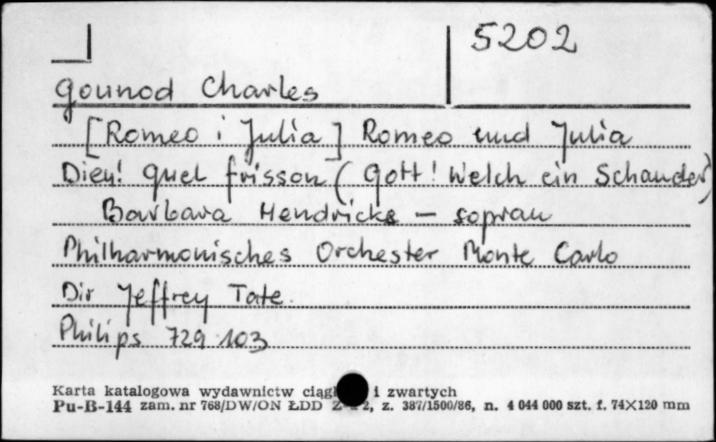 5202
Gounod Charles
[Romeo i Julia] Romeo und Julia
Dieu! quel frisson (Gott! Welch ein Schauder)
Barbara Hendricks – sopran
Philharmonisches Orchester Monte Carlo
Dir Jeffrey Tate
Philips 729 103
Karta katalogowa wydawnictw i zwartych
Pu-B-144 zam. nr 768/DW/ON ŁDD z. 387/1500/86, n. 4 044 000 szt. f. 74X120 mm